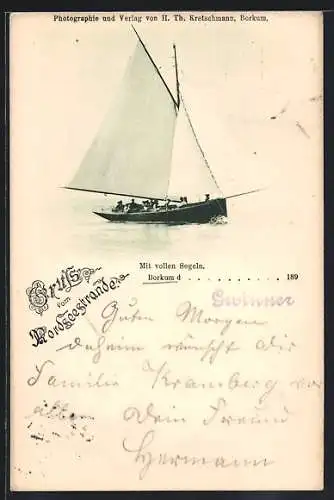 Photographie und Verlag von H. Th. Kretschmann, Borkum.
Mit vollen Segeln.
Gruss
vom
Nordseestrande.
Borkum d . . . . . . . . . . . . . 189
Guten Morgen
daheim wünscht die
Familie Kramberg vor
allem Dein Freund
Hermann